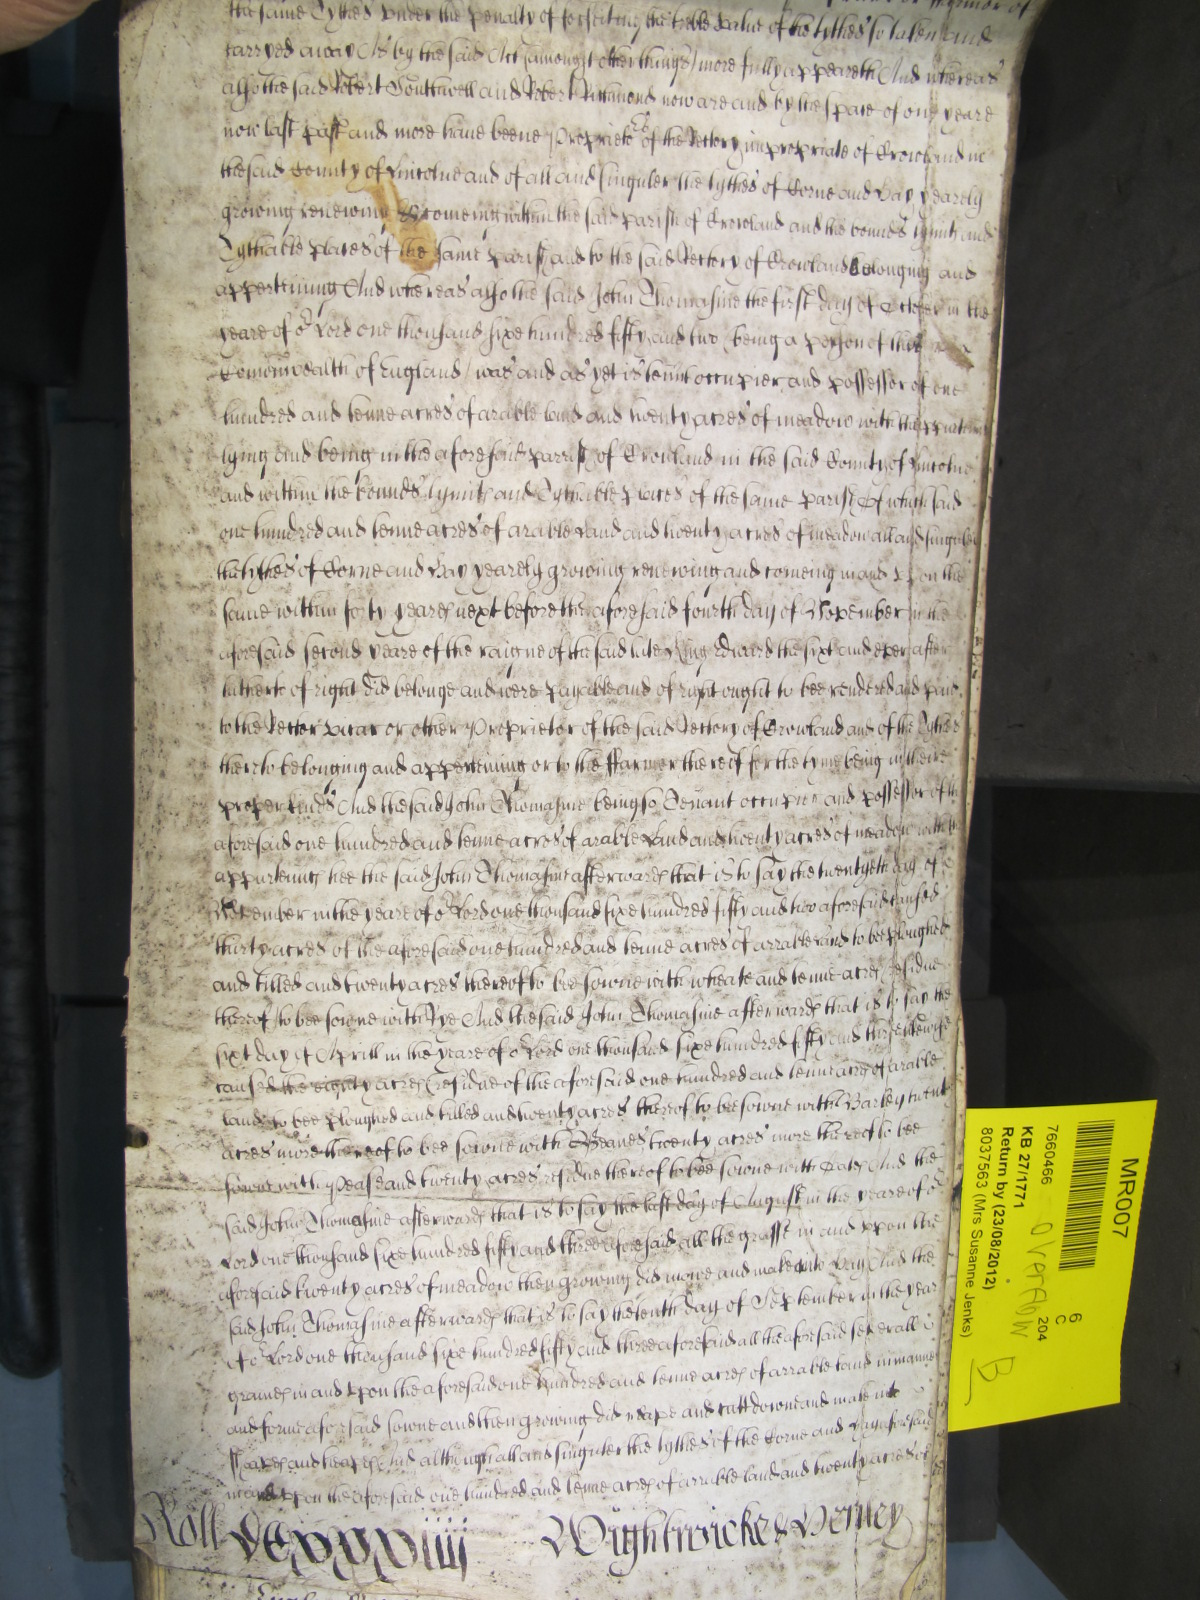 the same Tythes under the penalty of forfeiting the treble value of the tythes so taken and
carryed away As by the said Act (amongst other things) more fully appeareth And whereas
alsoe the said Robert Southwell and Robert now are and by the space of one yeare
now last past and more have beene Propriet of the Rectory impropriate of Crowland in
the said County of Lincolne and of all and singuler the tythes of Corne and Hay yearely
growing renewing & comeing within the said parish of Crowland and the bounds lymitts and
Tythable places of the same parish and to the said Rectory of Crowland belonging and
apperteining And whereas alsoe the said John Thomasine the first day of October in the
yeare of or Lord one thousand sixe hundred fifty and two (being a person of this
Comonwealth of England) was and as yet is tennt occupier and possessor of one
hundred and tenne acres of arable land and twenty acres of meadow with thappurten
lying and being in the aforesaid parrish of Crowland in the said County of Lincolne
and within the bounds lymitts and Tythable places of the same parish Of which said
one hundred and tenne acres of arable Land and twenty acres of meadow all and singuler
the tythes of Corne and Hay yearely growing renewing and comeing in and upon the
same within forty yeares next before the aforesaid fourth day of November in the
aforesaid second yeare of the raigne of the said late King Edward the sixt and ever after
hitherto of right did belonge and were payable and of right ought to bee rendered and paid
to the Rector vicar or other Proprietor of the said Rectory of Crowland and of the Tythes
thereto belonging and apperteining or to the ffarmer thereof for the tyme being in their
proper kinds And the said John Thomasine being so Tenant occupier and possessor of the
aforesaid one hundred and tenne acres of arable Land and twenty acres of meadow with th
appurtenns hee the said John Thomasine afterwards that is to say the twentyeth day of
in the yeare of or Lord one thousand sixe hundred fifty and two aforesaid caused
thirty acres of the aforesaid one hundred and tenne acres of arrable land to bee ploughed
and tilled and twenty acres thereof to bee sowne with wheate and tenne acres residue
thereof to bee sowne with Rye And the said John Thomasine afterwards that is to say the
sixt day of Aprill in the yeare of or Lord one thousand sixe hundred fifty and three likewise
caused the eighty acres residue of the aforesaid one hundred and tenne acres of arable
land to bee ploughed and tilled and twenty acres thereof to be sowne with Barley twenty
acres more thereof to bee sowne with Beanes twenty acres more thereof to bee
sowne with Pease and twenty acres residue thereof to bee sowne with Oates And the
said John Thomasine afterwards that is to say the last day of August in the yeare of or
Lord one thousand sixe hundred fifty and three aforesaid all the grasse in and upon the
aforesaid twenty acres of meadow then growing did mowe and make into Hay And the
said John Thomasine afterwards that is to say the tenth day of September in the year
of or Lord one thousand sixe hundred fifty and three aforesaid all the aforesaid severall
graines in and upon the aforesaid one hundred and tenne acres of arrable land in manner
and forme aforesaid sowne and then growing did reape and cutt downe and make into
and heapes And although all and singuler the tythes of the Corne and Hay aforesaid
in and upon the aforesaid one hundred and tenne acres of arrable land and twenty acres of
Roll Wightwicke & Verney
MR007
6
C
204
7660466
KB 27/1771
Return by (23/08/2012)
8037563 (Mrs Susanne Jenks)
B